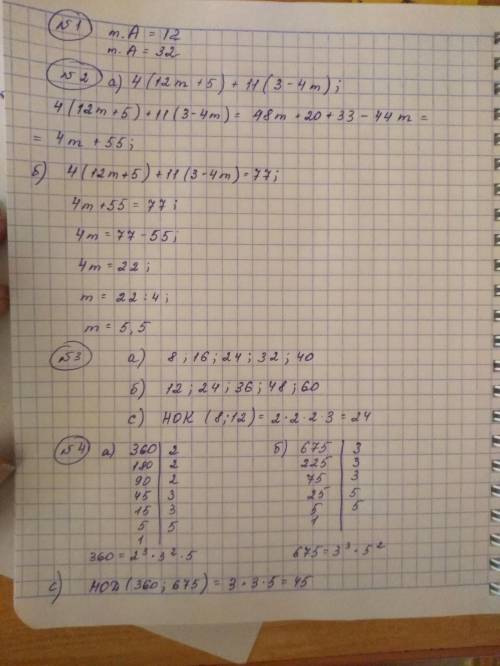 №1 т. А = 12
т. А = 32
№2 а) 4(12m+5)+11(3-4m);
4(12m+5)+11(3-4m) = 48m+20+33-44m =
= 4m + 55;
б) 4(12m+5)+11(3-4m)=77;
4m+55=77;
4m=77-55;
4m=22;
m = 22:4;
m = 5,5
№3 а) 8; 16; 24; 32; 40
б) 12; 24; 36; 48; 60
с) НОК (8;12) = 2·2·2·3 = 24
№4 а) 360 | 2 б) 675 | 3
180 | 2 225 | 3
90 | 2 75 | 3
45 | 3 25 | 5
15 | 3 5 | 5
5 | 5 1
1
360 = 2³·3²·5 675 = 3³·5²
с) НОД (360; 675) = 3·3·5 = 45